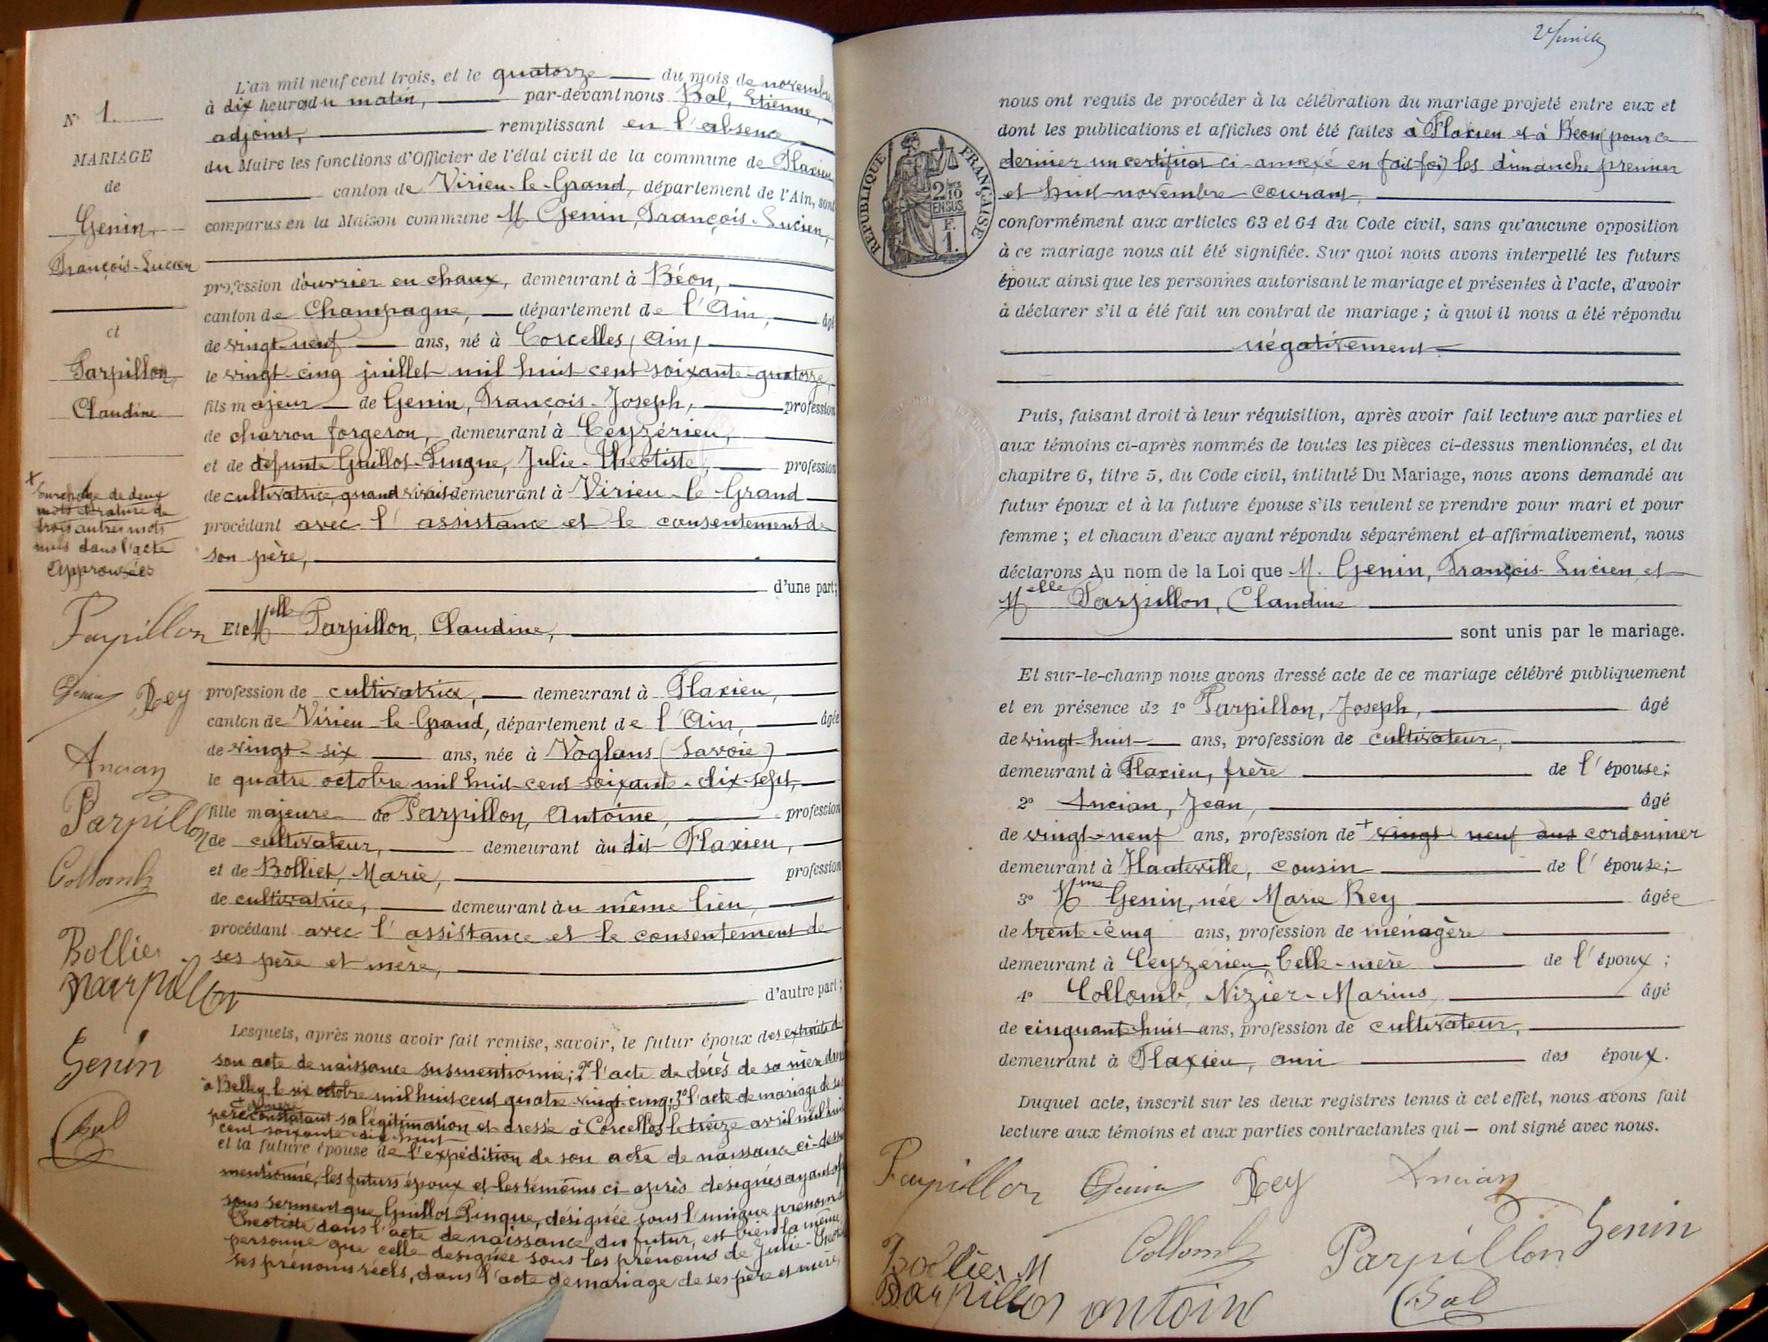 N° 1.
MARIAGE
de
Genin,
François-Lucien
et
Parpillon
Claudine
Surcharge de deux
mots et rature de
trois autres mots
nuls dans l'acte
Approuvées
Parpillon
Genin Rey
Ancian
Parpillon
Collomb
Bollier
Parpillon
Genin
Bal
L'an mil neuf cent trois, et le quatorze du mois de novembre
à dix heures du matin, par-devant nous Bal, Etienne,
adjoint, remplissant en l'absence
du Maire les fonctions d'Officier de l'état civil de la commune de Flaxieu
canton de Virieu-le-Grand, département de l'Ain, sont
comparus en la Maison commune M. Genin, François-Lucien,
profession d'ouvrier en chaux, demeurant à Béon,
canton de Champagne, département de l'Ain, âgé
de vingt-neuf ans, né à Corcelles (Ain)
le vingt-cinq juillet mil huit cent soixante-quatorze,
fils majeur de Genin, François-Joseph, profession
de charron forgeron, demeurant à Ceyzérieu,
et de défunte Guillot-Pingue, Julie-Théotiste, profession
de cultivatrice, quand vivait demeurant à Virieu-le-Grand
procédant avec l'assistance et le consentement de
son père,
d'une part;
Et Melle Parpillon, Claudine,
profession de cultivatrice, demeurant à Flaxieu,
canton de Virieu-le-Grand, département de l'Ain, âgée
de vingt-six ans, née à Voglans (Savoie)
le quatre octobre mil huit cent soixante-dix-sept,
fille majeure de Parpillon, Antoine, profession
de cultivateur, demeurant au dit Flaxieu,
et de Bolliet, Marie, profession
de cultivatrice, demeurant au même lieu,
procédant avec l'assistance et le consentement de
ses père et mère,
d'autre part;
Lesquels, après nous avoir fait remise, savoir, le futur époux des extraits de
son acte de naissance susmentionné; 2° l'acte de décès de sa mère
à Belley le six octobre mil huit cent quatre-vingt-cinq; 3° l'acte de mariage de ses
père et mère constatant sa légitimation et dressé à Corcelles le treize avril mil huit
cent soixante-dix-huit
et la future épouse de l'expédition de son acte de naissance ci-dessus
mentionné, les futurs époux et les témoins ci-après désignés ayant
sous serment que Guillot Pingue, désignée sous l'unique prénom de
Théotiste dans l'acte de naissance du futur, est bien la même
personne que celle désignée sous les prénoms de Julie-Théotiste
ses prénoms réels, dans l'acte de mariage de ses père et mère,
RÉPUBLIQUE FRANÇAISE
2/10
EN SUS
F.
1.
nous ont requis de procéder à la célébration du mariage projeté entre eux et
dont les publications et affiches ont été faites à Flaxieu et à Béon (pour ce
dernier un certificat ci-annexé en fait foi) les dimanche premier
et huit novembre courant,
conformément aux articles 63 et 64 du Code civil, sans qu'aucune opposition
à ce mariage nous ait été signifiée. Sur quoi nous avons interpellé les futurs
époux ainsi que les personnes autorisant le mariage et présentes à l'acte, d'avoir
à déclarer s'il a été fait un contrat de mariage; à quoi il nous a été répondu
négativement.
Puis, faisant droit à leur réquisition, après avoir fait lecture aux parties et
aux témoins ci-après nommés de toutes les pièces ci-dessus mentionnées, et du
chapitre 6, titre 5, du Code civil, intitulé Du Mariage, nous avons demandé au
futur époux et à la future épouse s'ils veulent se prendre pour mari et pour
femme; et chacun d'eux ayant répondu séparément et affirmativement, nous
déclarons Au nom de la Loi que M. Genin, François-Lucien, et
Melle Parpillon, Claudine
sont unis par le mariage.
Et sur-le-champ nous avons dressé acte de ce mariage célébré publiquement
et en présence de 1° Parpillon, Joseph, âgé
de vingt-huit ans, profession de cultivateur,
demeurant à Flaxieu, frère de l'épouse;
2° Ancian, Jean, âgé
de vingt-neuf ans, profession de + vingt neuf ans cordonnier
demeurant à Hauteville, cousin de l'épouse;
3° Mme Genin, née Marie Rey âgée
de trente-cinq ans, profession de ménagère
demeurant à Ceyzérieu, belle-mère de l'époux;
4° Collomb, Nizier-Marius, âgé
de cinquante-huit ans, profession de cultivateur,
demeurant à Flaxieu, ami des époux.
Duquel acte, inscrit sur les deux registres tenus à cet effet, nous avons fait
lecture aux témoins et aux parties contractantes qui — ont signé avec nous.
Parpillon Genin Rey Ancian
Bollier M Collomb Parpillon Genin
Parpillon antoine Bal